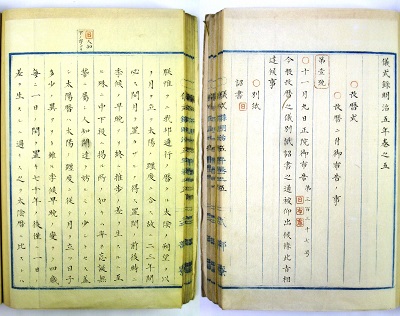 儀式録明治五年巻之五
○改暦式
○改暦ニ付御布告ノ事
第壹號
○十一月九日正院御布告 第三百三十七号
今般改暦之儀別紙詔書之通被仰出候條此旨相
達候事
○別紙
詔書
朕惟フニ我邦通行ノ暦タル太陰ノ朔望ヲ以
テ月ヲ立テ太陽ノ躔度ニ合ス故ニ二三年間
必ス閏月ヲ置カサルヲ得ス置閏ノ前後時ニ
季候ノ早晩アリ終ニ推歩ノ差ヲ生スルニ至
ル殊ニ中下段ニ掲ル所ノ如キハ率子妄誕無
稽ニ属シ人知ノ開達ヲ妨ルモノ少シトセス盖
シ太陽暦ハ太陽ノ躔度ニ從テ月ヲ立ツ日子
多少ノ異アリト雖モ季候早晩ノ變ナク四歳
毎ニ一日ノ閏ヲ置キ七千年ノ後僅ニ一日ノ
差ヲ生スルニ過キス之ヲ太陰暦ニ比スレハ